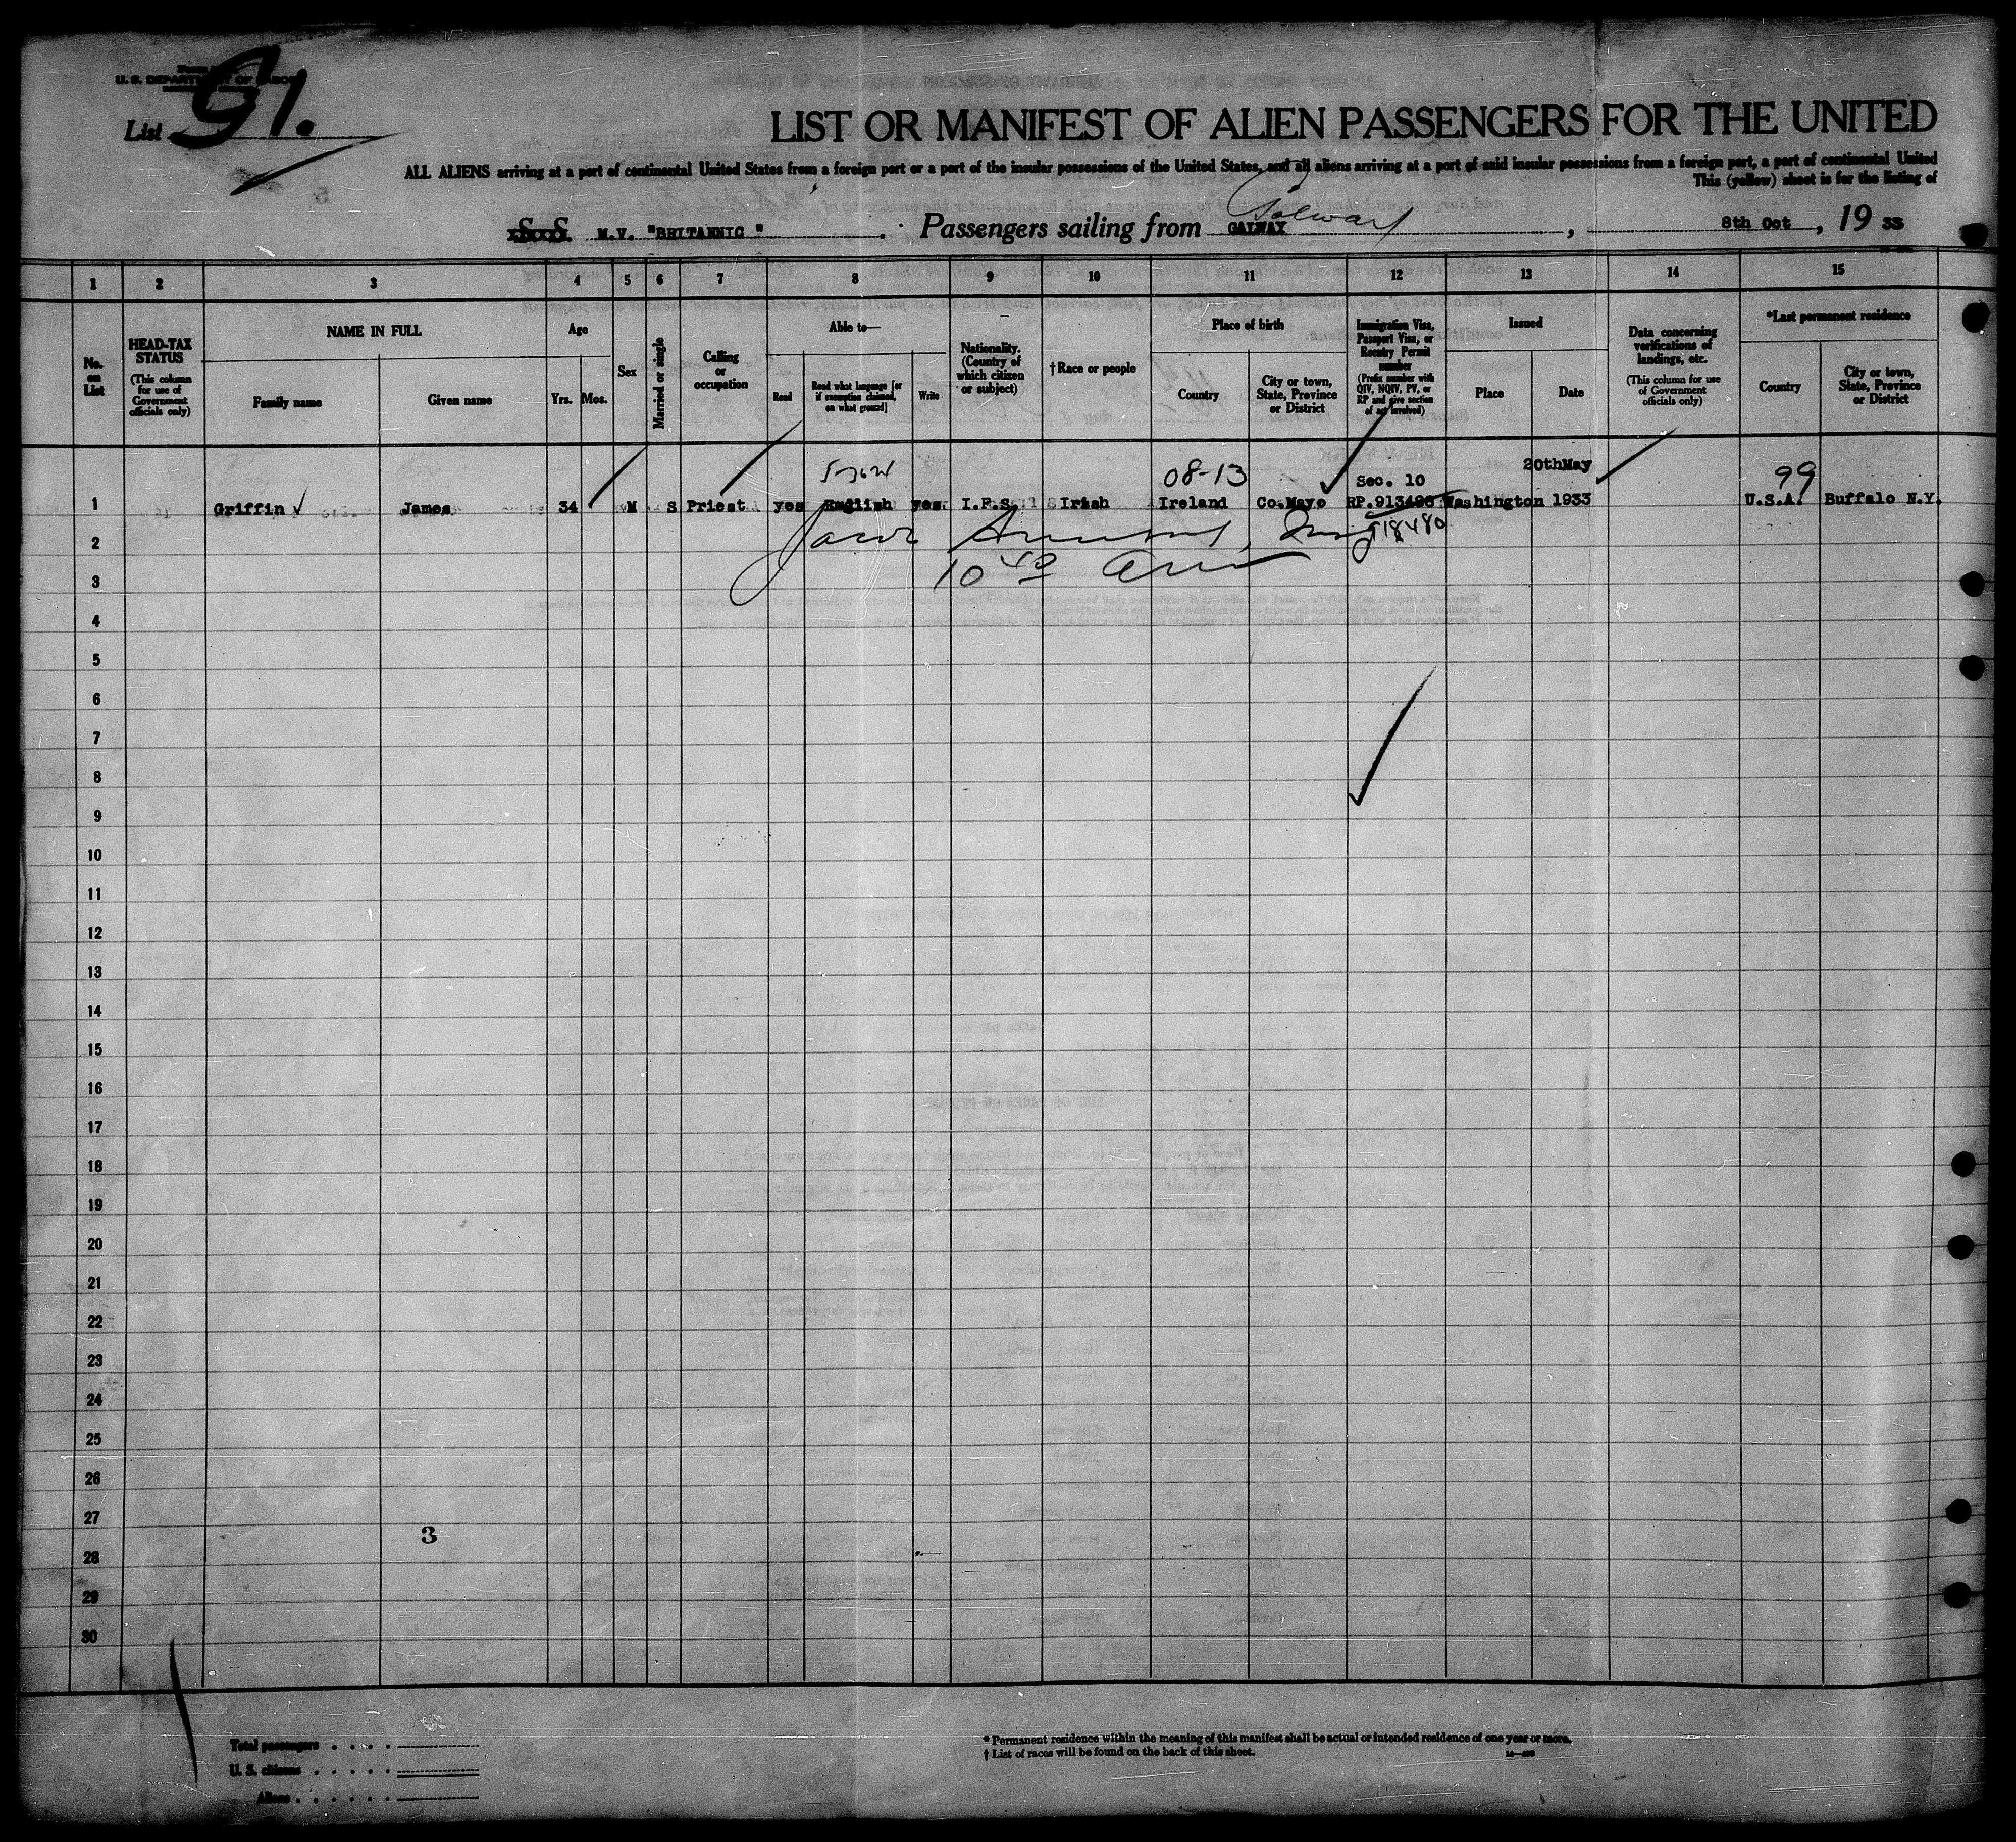 U. S. DEPARTMENT OF LABOR
List 91.
LIST OR MANIFEST OF ALIEN PASSENGERS FOR THE UNITED
ALL ALIENS arriving at a port of continental United States from a foreign port or a port of the insular possessions of the United States, and all aliens arriving at a port of said insular possessions from a foreign port, a port of continental United
This (yellow) sheet is for the listing of
S. S. M.V. "BRITANNIC" Passengers sailing from GALWAY Galway, 8th Oct, 19 33
1 2 3 4 5 6 7 8 9 10 11 12 13 14 15
No. on List
HEAD-TAX STATUS
(This column for use of Government officials only)
NAME IN FULL
Family name
Given name
Age
Yrs. Mos.
Sex
Married or single
Calling or occupation
Able to—
Read
Read what language [or if exemption claimed, on what ground]
Write
Nationality. (Country of which citizen or subject)
†Race or people
Place of birth
Country
City or town, State, Province or District
Immigration Visa, Passport Visa, or Reentry Permit number
(Prefix number with QIV, NQIV, PV, or RP and give section of act involved)
Issued
Place
Date
Data concerning verifications of landings, etc.
(This column for use of Government officials only)
*Last permanent residence
Country
City or town, State, Province or District
08-13 Sec. 10 20thMay 99
1 Griffin James 34 M S Priest yes English yes I.F.S. Irish Ireland Co.Mayo RP.913486 Washington 1933 U.S.A. Buffalo N.Y.
918480
2
3
4
5
6
7
8
9
10
11
12
13
14
15
16
17
18
19
20
21
22
23
24
25
26
27
3
28
29
30
Total passengers
U. S. citizens
Aliens
* Permanent residence within the meaning of this manifest shall be actual or intended residence of one year or more.
† List of races will be found on the back of this sheet.